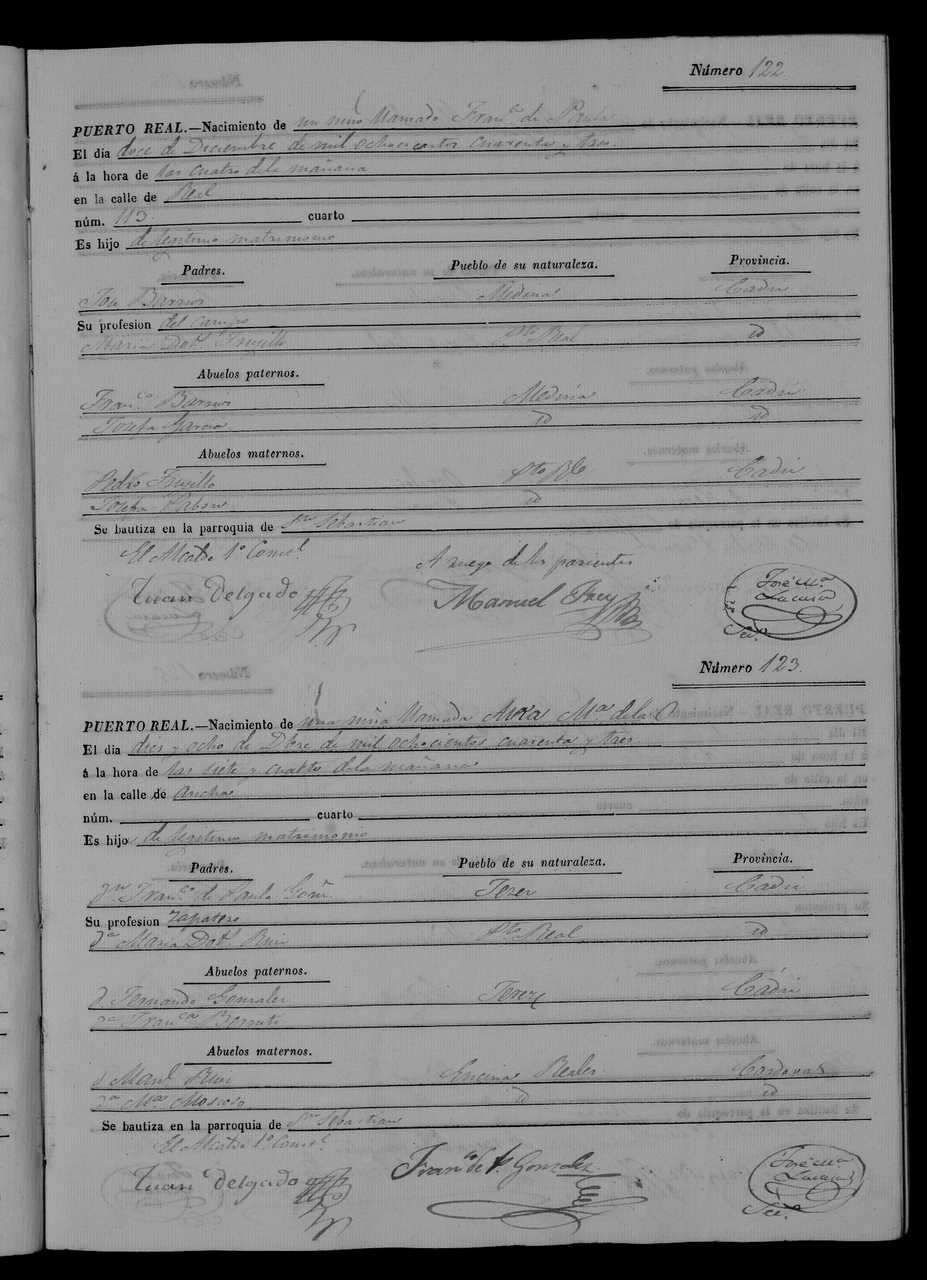 Número 122
PUERTO REAL.—Nacimiento de un niño llamado Fran.co de Paula
El dia doce de Diciembre de mil ochocientos cuarenta y tres
á la hora de las cuatro dela mañana
en la calle de Real
núm. 113 cuarto
Es hijo de legitimo matrimonio
Padres. Pueblo de su naturaleza. Provincia.
José Barrios Medina Cadiz
Su profesion del campo
Maria Dol.s Trujillo Pto Real id
Abuelos paternos.
Fran.co Barrios Medina Cadiz
Josefa Garcia id id
Abuelos maternos.
Pedro Trujillo Pto Rl Cadiz
Josefa id
Se bautiza en la parroquia de Sn Sebastian
El Alcalde 1º Consl. A ruego de los parientes
Juan Delgado Manuel José Mª
Sec.º
Número 123.
PUERTO REAL.—Nacimiento de una niña llamada Mª dela O
El dia diez y ocho de Dbre de mil ochocientos cuarenta y tres
á la hora de las siete y cuarto dela mañana
en la calle de Ancha
núm. cuarto
Es hijo de legitimo matrimonio
Padres. Pueblo de su naturaleza. Provincia.
Dn Fran.co de Paula Gonz Jerez Cadiz
Su profesion Zapatero
Dª Maria Dol.s Ruiz Pto Real id
Abuelos paternos.
D Fernando Gonzalez Jerez Cádiz
Dª Fran.ca
Abuelos maternos.
D Manl Ruiz Encinas Reales Cordova
Dª Mª Moscoso id id
Se bautiza en la parroquia de Sn Sebastian
El Alcalde 1º Consl.
Juan Delgado Fran.co de P. Gonzalez José Mª
Sec.º